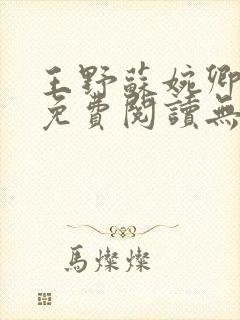 王野蘇婉卿
免費閱讀無
馬燦燦